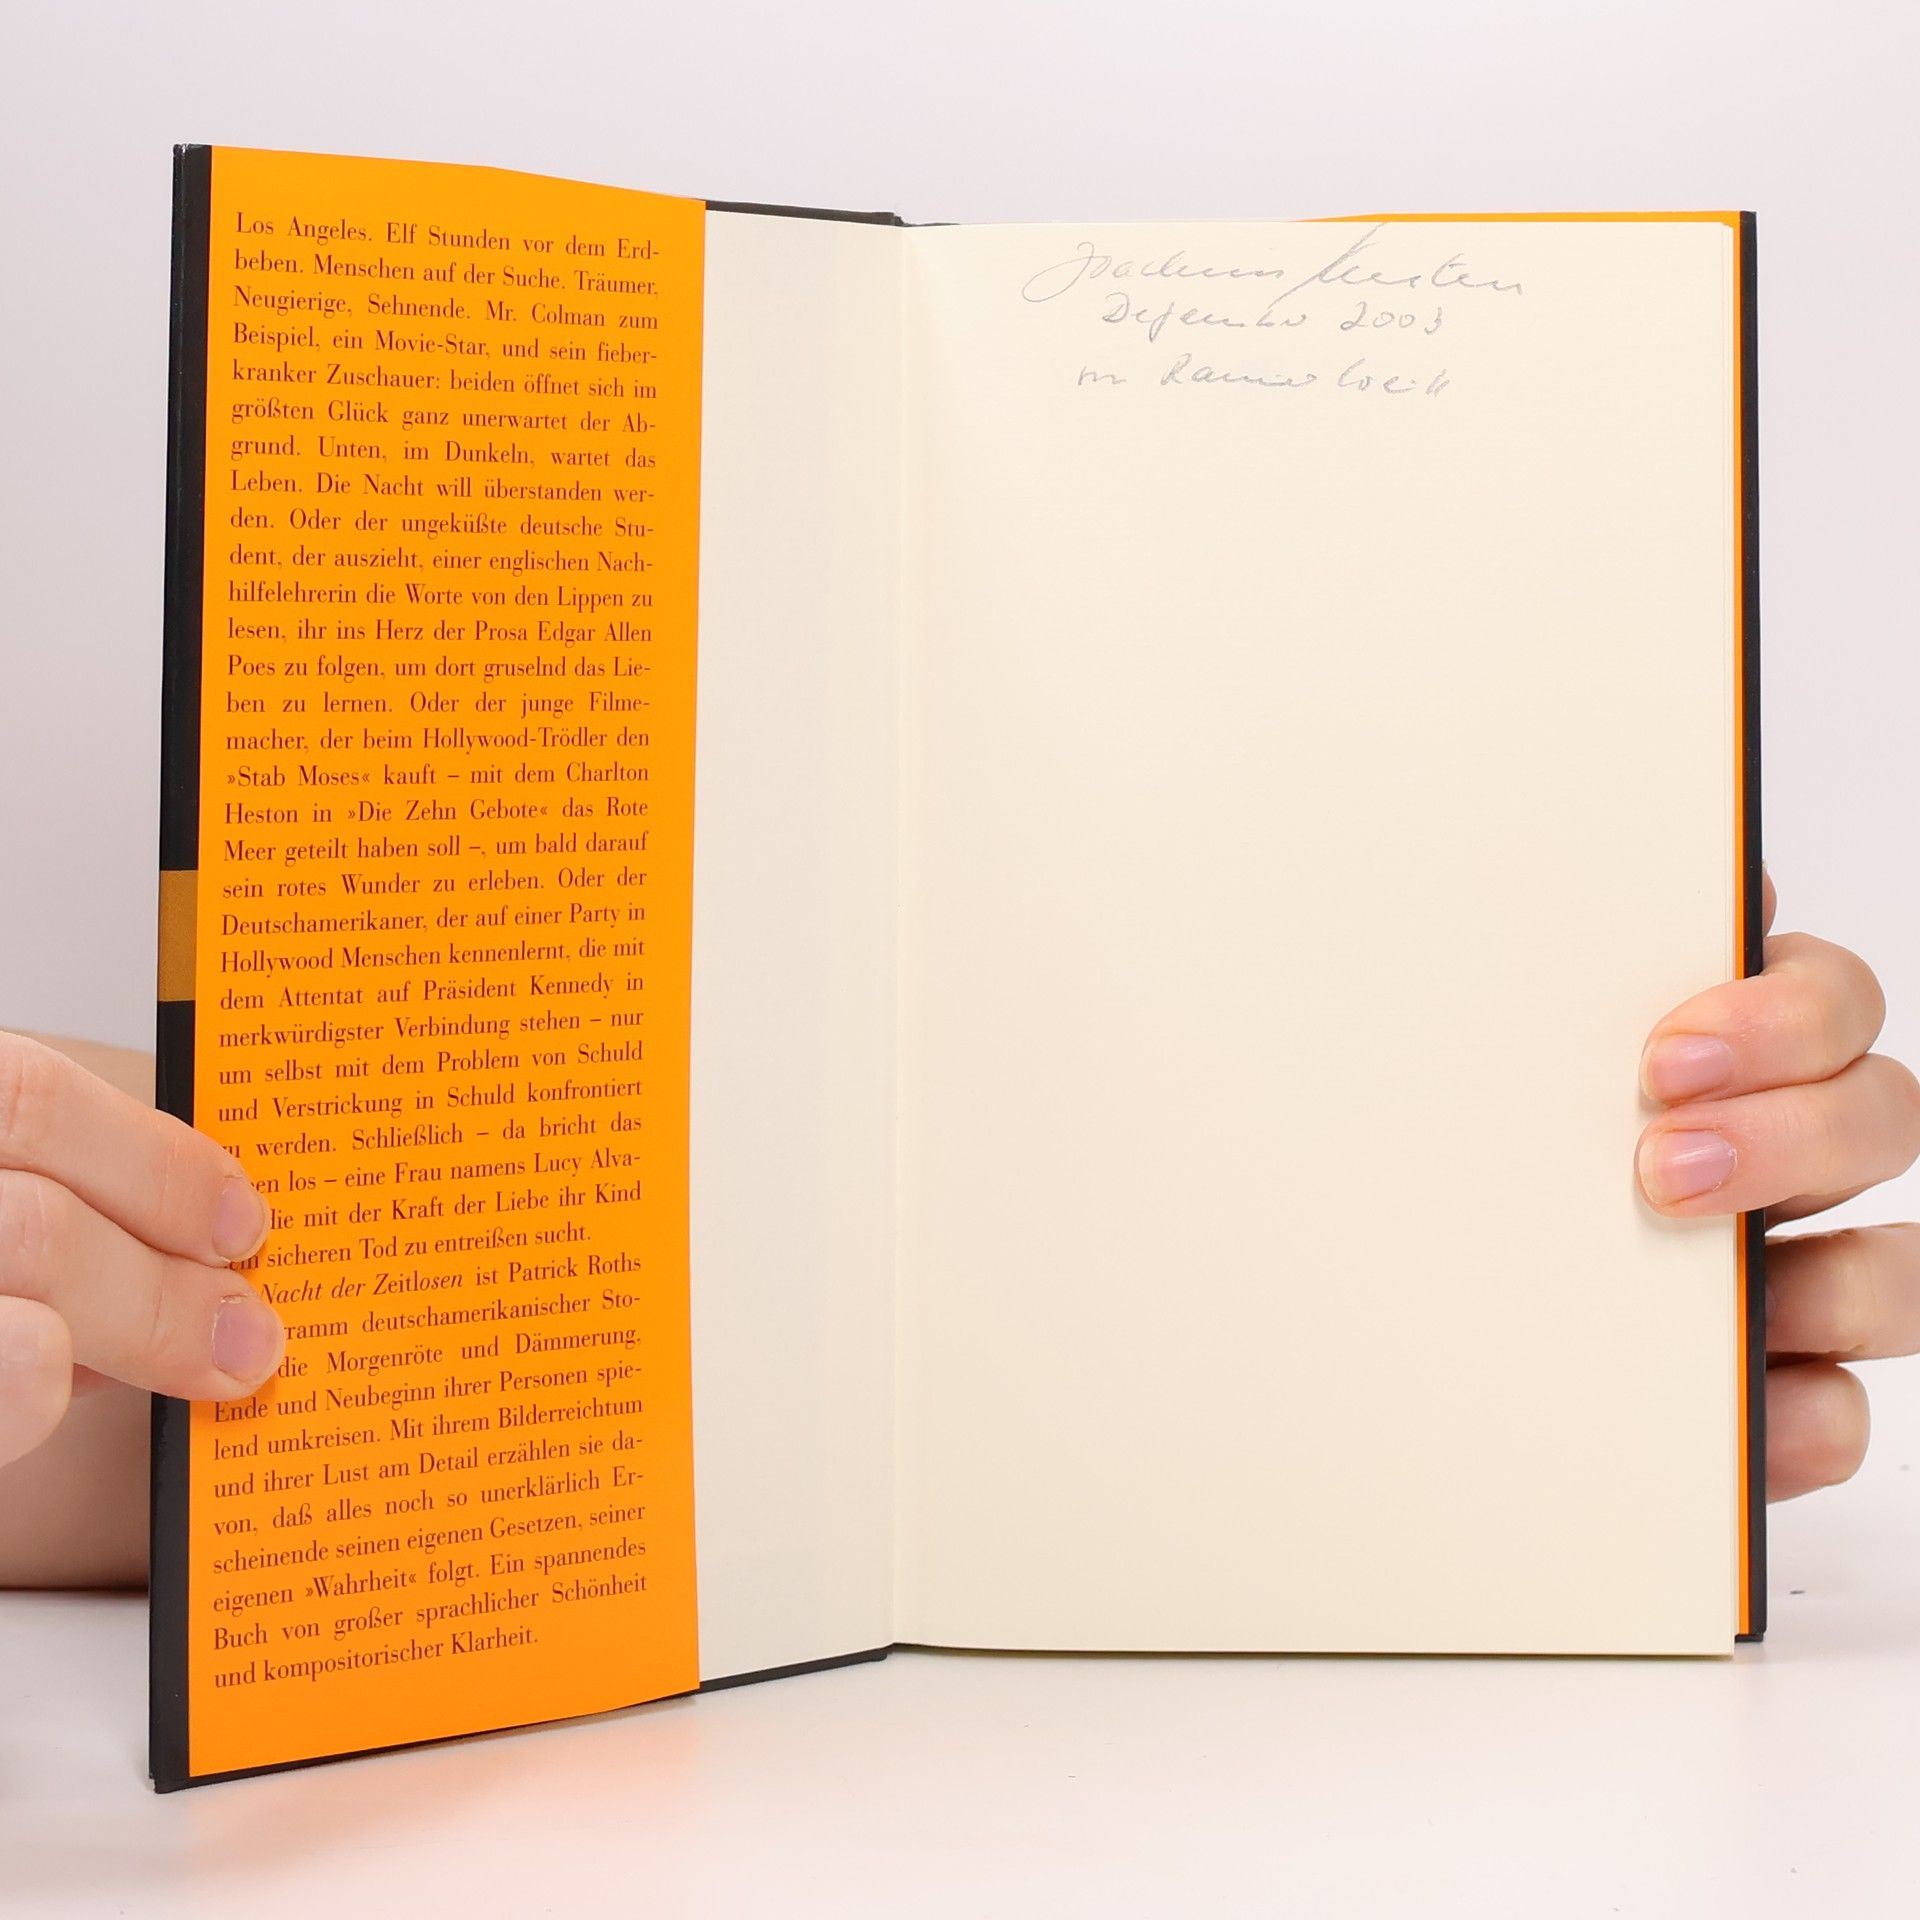 Los Angeles. Elf Stunden vor dem Erd-
beben. Menschen auf der Suche. Träumer,
Neugierige, Sehnende. Mr. Colman zum
Beispiel, ein Movie-Star, und sein fieber-
kranker Zuschauer: beiden öffnet sich im
größten Glück ganz unerwartet der Ab-
grund. Unten, im Dunkeln, wartet das
Leben. Die Nacht will überstanden wer-
den. Oder der ungeküßte deutsche Stu-
dent, der auszieht, einer englischen Nach-
hilfelehrerin die Worte von den Lippen zu
lesen, ihr ins Herz der Prosa Edgar Allen
Poes zu folgen, um dort gruselnd das Lie-
ben zu lernen. Oder der junge Filme-
macher, der beim Hollywood-Trödler den
»Stab Moses« kauft – mit dem Charlton
Heston in »Die Zehn Gebote« das Rote
Meer geteilt haben soll –, um bald darauf
sein rotes Wunder zu erleben. Oder der
Deutschamerikaner, der auf einer Party in
Hollywood Menschen kennenlernt, die mit
dem Attentat auf Präsident Kennedy in
merkwürdigster Verbindung stehen – nur
um selbst mit dem Problem von Schuld
und Verstrickung in Schuld konfrontiert
werden. Schließlich – da bricht das
los – eine Frau namens Lucy Alva-
die mit der Kraft der Liebe ihr Kind
sicheren Tod zu entreißen sucht.
Nacht der Zeitlosen ist Patrick Roths
deutschamerikanischer Sto-
die Morgenröte und Dämmerung,
Ende und Neubeginn ihrer Personen spie-
lend umkreisen. Mit ihrem Bilderreichtum
und ihrer Lust am Detail erzählen sie da-
von, daß alles noch so unerklärlich Er-
scheinende seinen eigenen Gesetzen, seiner
eigenen »Wahrheit« folgt. Ein spannendes
Buch von großer sprachlicher Schönheit
und kompositorischer Klarheit.
Joachim Kersten
Dezember 2003
von Rainer